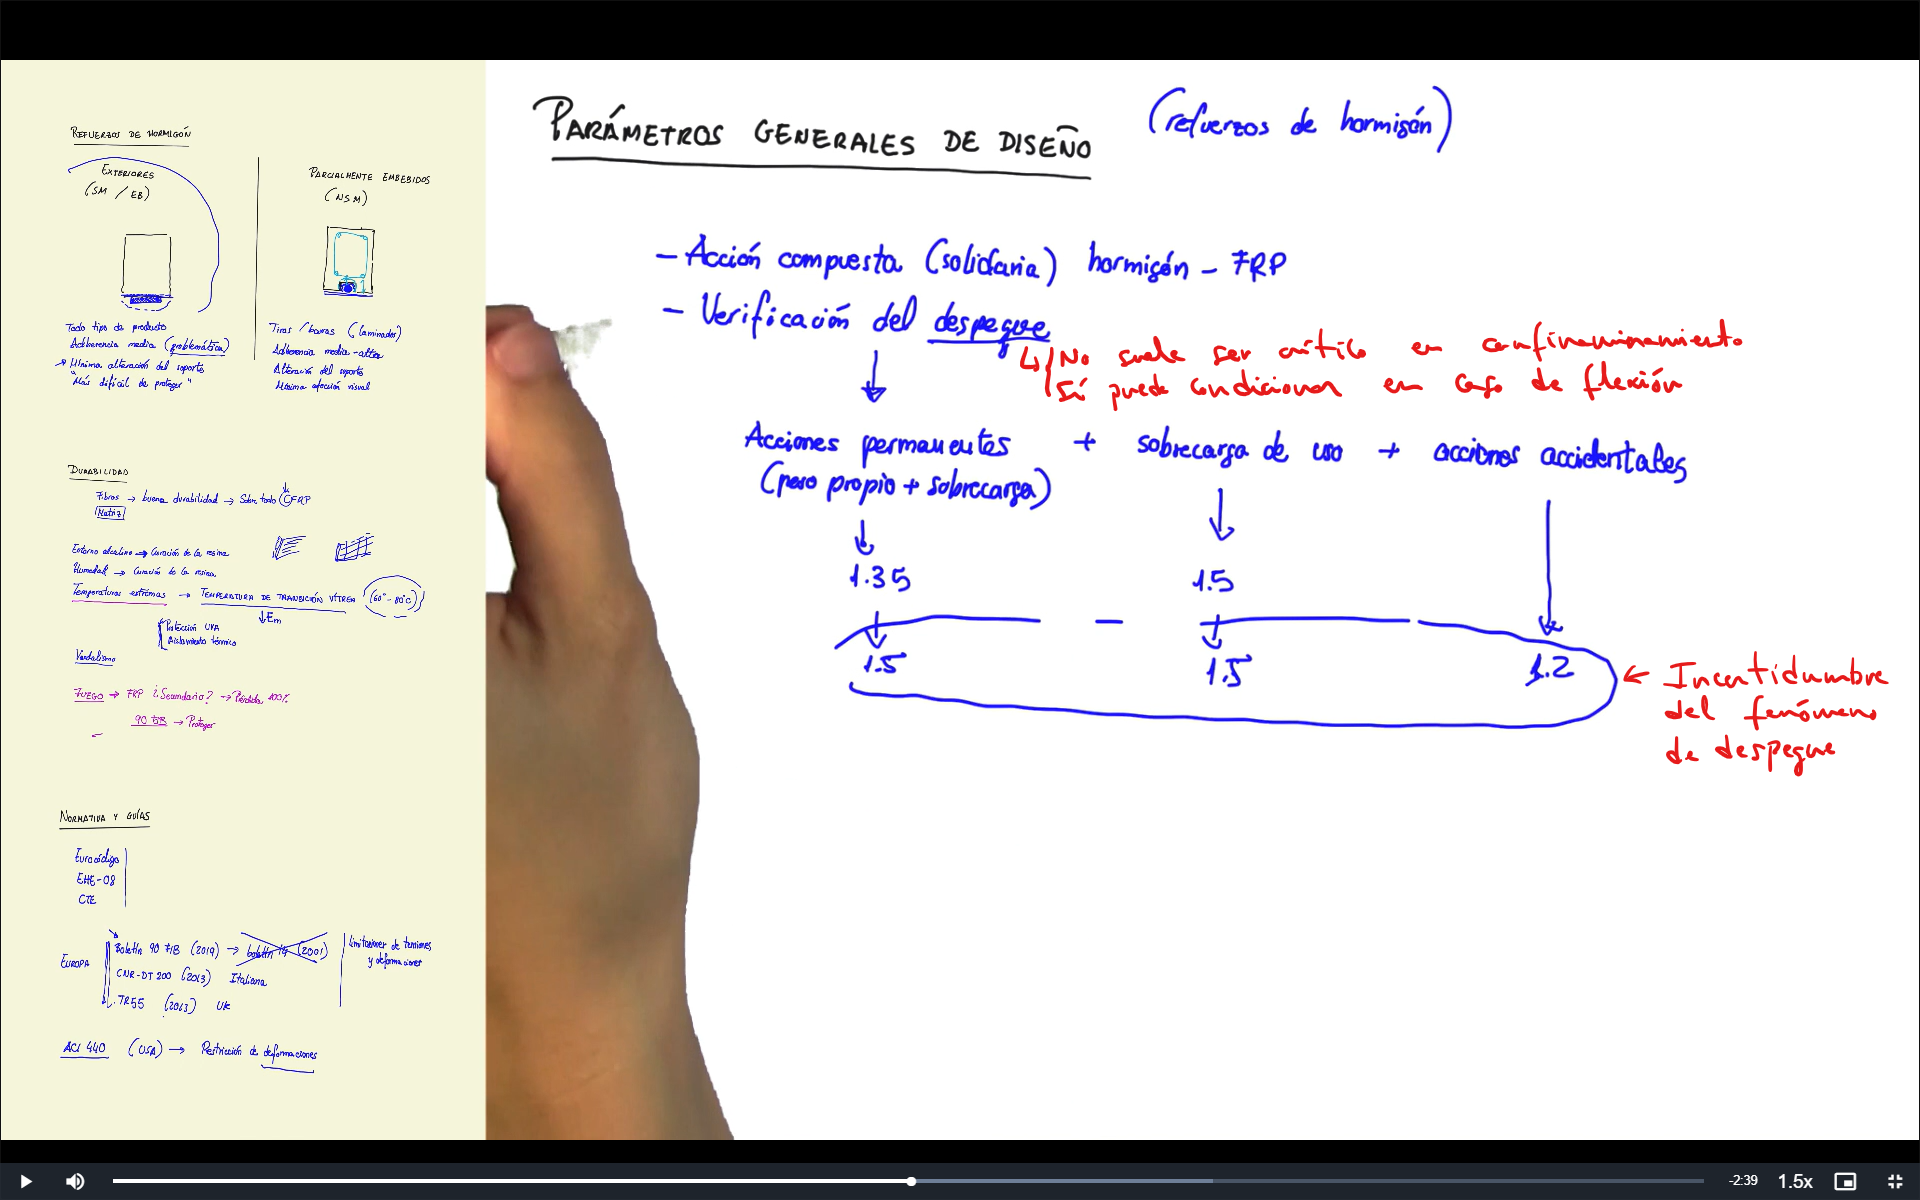 REFUERZOS DE HORMIGÓN
EXTERIORES
(SM / EB)
Todo tipo de producto
Adherencia media (problemática)
→ Mínima alteración del soporte
"Más difícil de proteger"
PARCIALMENTE EMBEBIDOS
(NSM)
Tiras / barras (laminados)
Adherencia media-alta
Alteración del soporte
Mínima afección visual
DURABILIDAD
Fibras → buena durabilidad → Sobre todo CFRP
Matriz
Entorno alcalino → Curación de la resina
Humedad → Curación de la resina
Temperaturas extremas → TEMPERATURA DE TRANSICIÓN VÍTREA (60°-80°C)
↓Em
Protección UVA
Aislamiento térmico
Vandalismo
FUEGO → FRP ¿Secundario? → Pérdida 100%
90 FIB → Proteger
NORMATIVA Y GUÍAS
Eurocódigo
EHE-08
CTE
EUROPA
Boletín 90 FIB (2019) → boletín 14 (2001)
CNR-DT 200 (2013) Italiana
TR55 (2013) UK
Limitaciones de tensiones
y deformaciones
ACI 440 (USA) → Restricción de deformaciones
PARÁMETROS GENERALES DE DISEÑO (refuerzos de hormigón)
- Acción compuesta (solidaria) hormigón - FRP
- Verificación del despegue
No suele ser crítico en confinaminamiento
Sí puede condicionar en caso de flexión
Acciones permanentes + sobrecarga de uso + acciones accidentales
(peso propio + sobrecarga)
1.35 1.5
1.5 1.5 1.2
← Incertidumbre
del fenómeno
de despegue
-2:39 1.5x